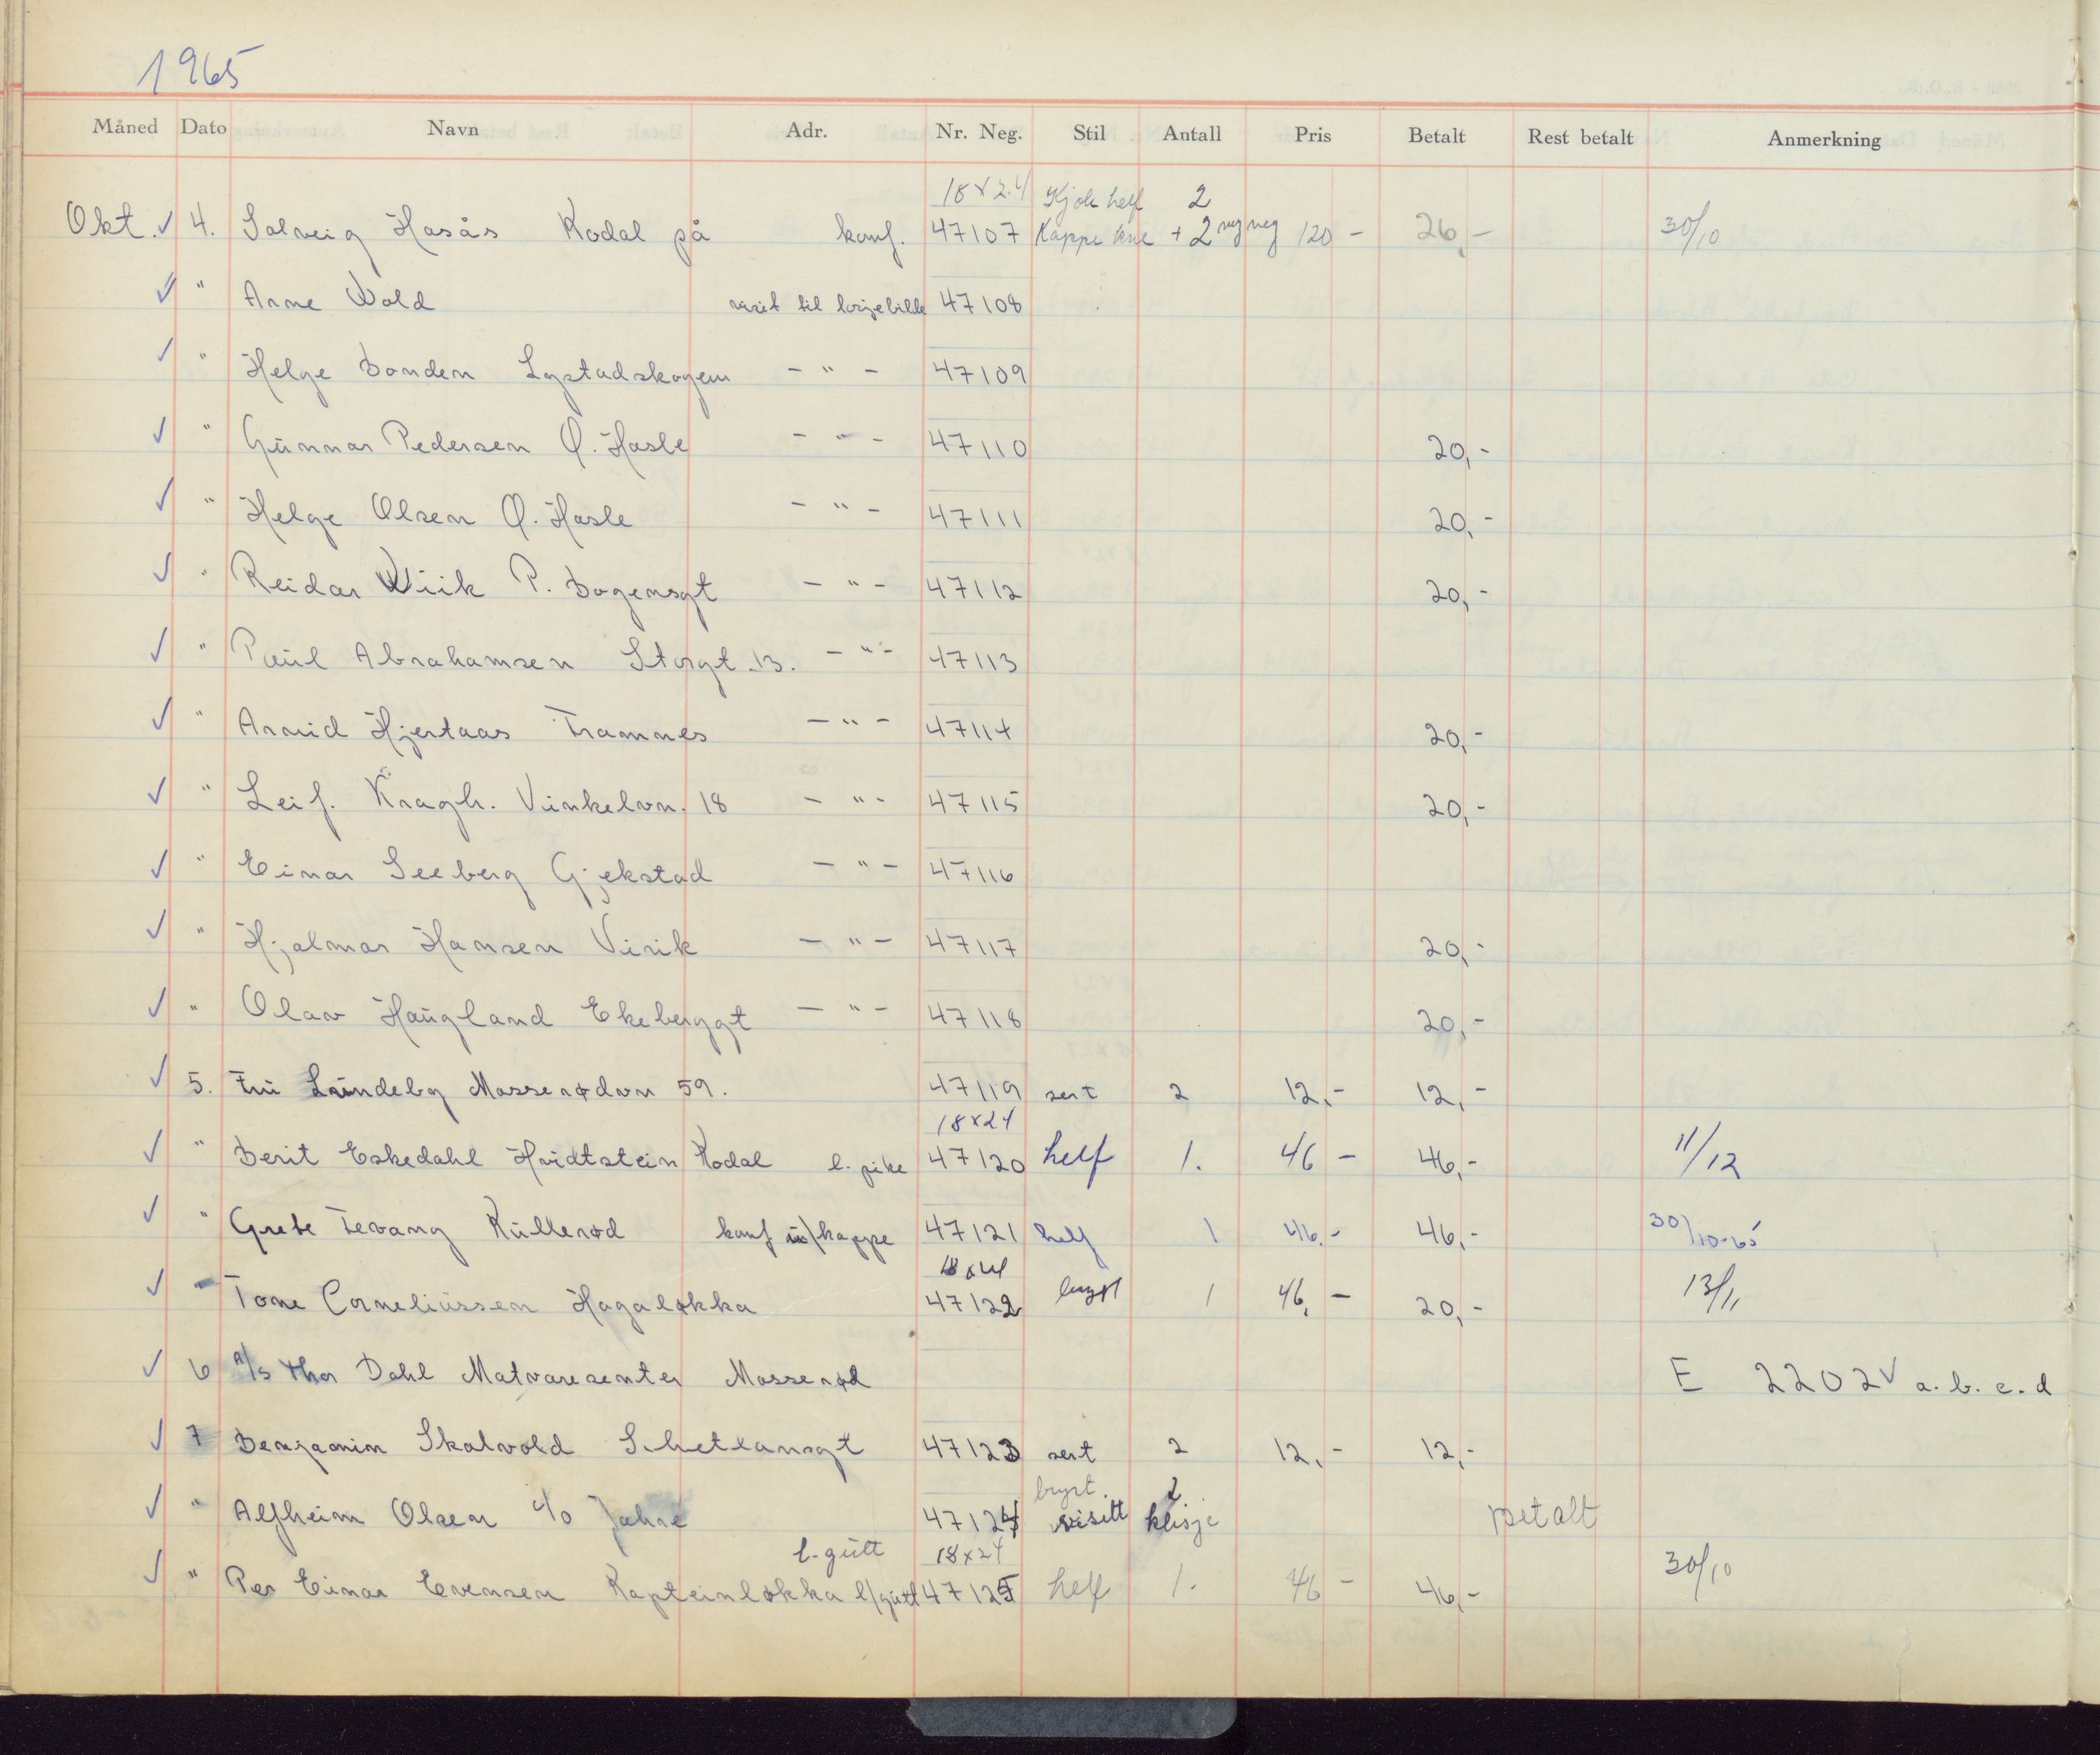 1965
Måned Dato Navn Adr. Nr. Neg. Stil Antall Pris Betalt Rest betalt Anmerkning
18x24 Kjole helf 2
Okt. ✓ 4. Solveig Hasås Kodal på konf. 47107 Kappe kne + 2 neg 120 - 26,- 30/10
✓ " Arne Wold visit til losjebilde 47108
✓ " Helge Bonden Lystadskogen - " - 47109
✓ " Gunnar Pedersen Ø. Hasle - " - 47110 20,-
✓ " Helge Olsen Ø. Hasle - " - 47111 20,-
✓ " Reidar Wiik P. Bogensgt - " - 47112 20,-
✓ " Paul Abrahamsen Storgt. 13. - " - 47113
✓ " Arvid Hjertaas Framnes - " - 47114 20,-
✓ " Leif. Kragh. Vinkelvn. 18 - " - 47115 20,-
✓ " Einar Seeberg Gjekstad - " - 47116
✓ " Hjalmar Hansen Virik - " - 47117 20,-
✓ " Olav Haugland Ekeberggt - " - 47118 20,-
✓ 5. Fru Lindeby Mosserødvn 59. 47119 sert 2 12,- 12,-
18x24
✓ " Berit Eskedahl Hvidtstein Kodal l. pike 47120 helf 1. 46 - 46,- 11/12
✓ " Grete Tevang Kullerød konf m/kappe 47121 helf 1 46,- 46,- 30/10-65
18x24
✓ " Tone Corneliussen Hagaløkka 47122 bryst 1 46,- 20,- 13/11
✓ 6 A/s Thor Dahl Matvaresenter Mosserød E 2202✓ a. b. c. d
✓ 7 Benjamin Skalvold Schetlansgt 47123 sert 2 12,- 12,-
bryst. 2
✓ " Alfheim Olsen c/o Jahre 47124 visitt klisje betalt
l. gutt 18x24
✓ " Per Einar Evensen Kapteinløkka l/gutt 47125 helf 1. 46 - 46,- 30/10